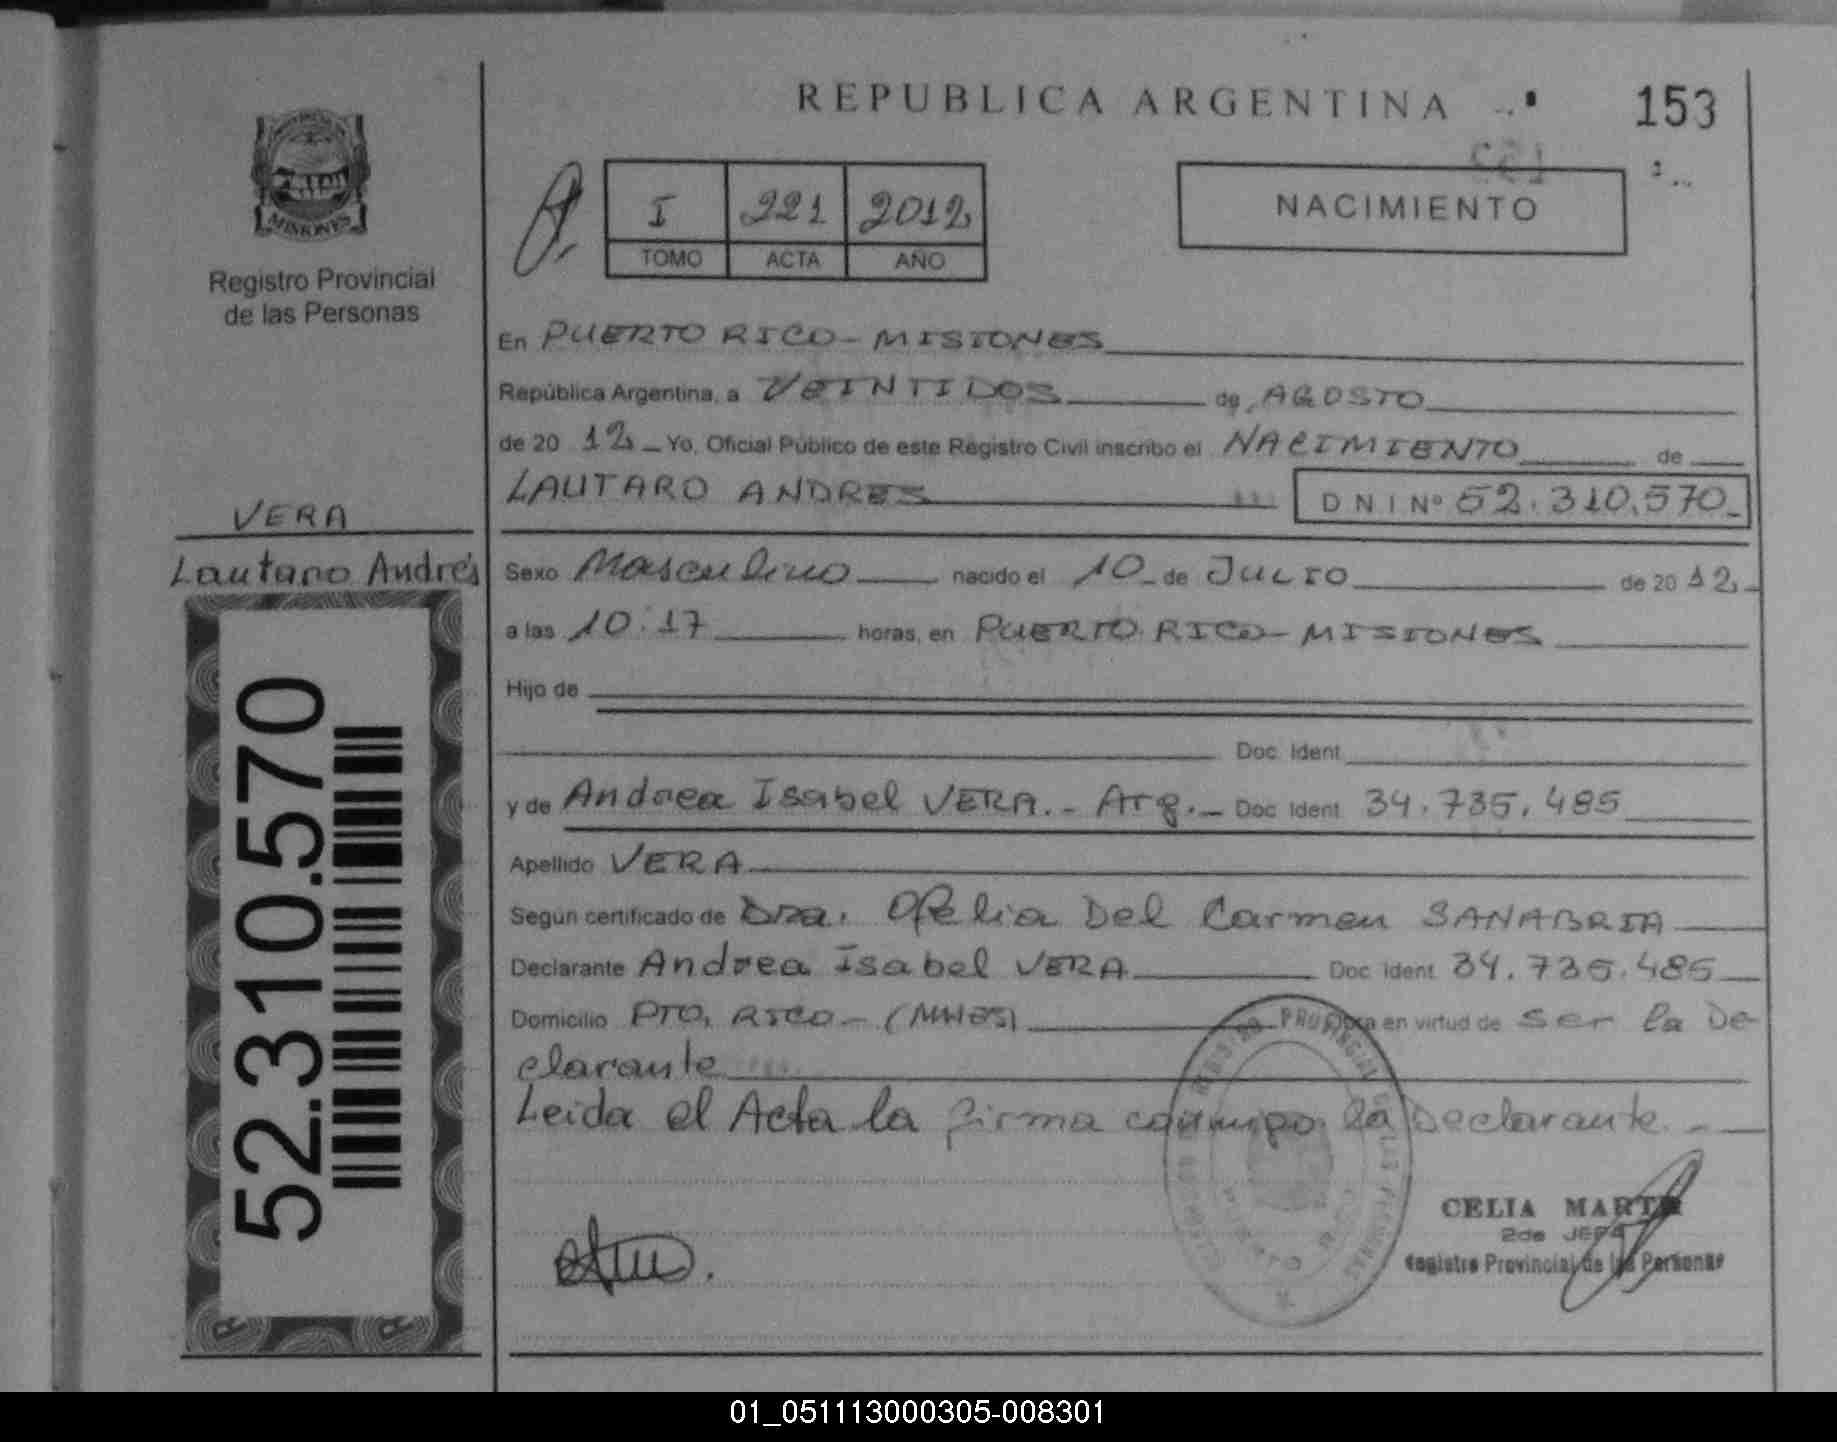 REPUBLICA ARGENTINA
153
MISIONES
Registro Provincial
de las Personas
I 221 2012
TOMO ACTA AÑO
NACIMIENTO
En PUERTO RICO - MISIONES
República Argentina, a VEINTIDOS de AGOSTO
de 20 12 Yo, Oficial Público de este Registro Civil inscribo el NACIMIENTO de
LAUTARO ANDRES D N I Nº 52.310.570
VERA
Lautaro Andrés
Sexo Masculino nacido el 10 de JULIO de 20 12
a las 10:17 horas, en PUERTO RICO - MISIONES
Hijo de
Doc. Ident.
y de Andrea Isabel VERA.- Arg.- Doc. Ident. 34.735.485
Apellido VERA
Según certificado de Dra. Ofelia Del Carmen SANABRIA
Declarante Andrea Isabel VERA Doc. Ident. 34.735.485
Domicilio PTO. RICO - (MNES) Obra en virtud de ser la De
clarante
Leida el Acta la firma conmigo la Declarante.-
52.310.570
CELIA
2da JEFA
Registro Provincial de las Personas
01_051113000305-008301